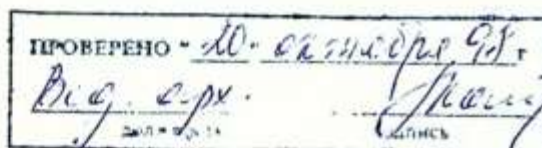 ПРОВЕРЕНО "20" октября 98 г
Вед. арх.
должность подпись